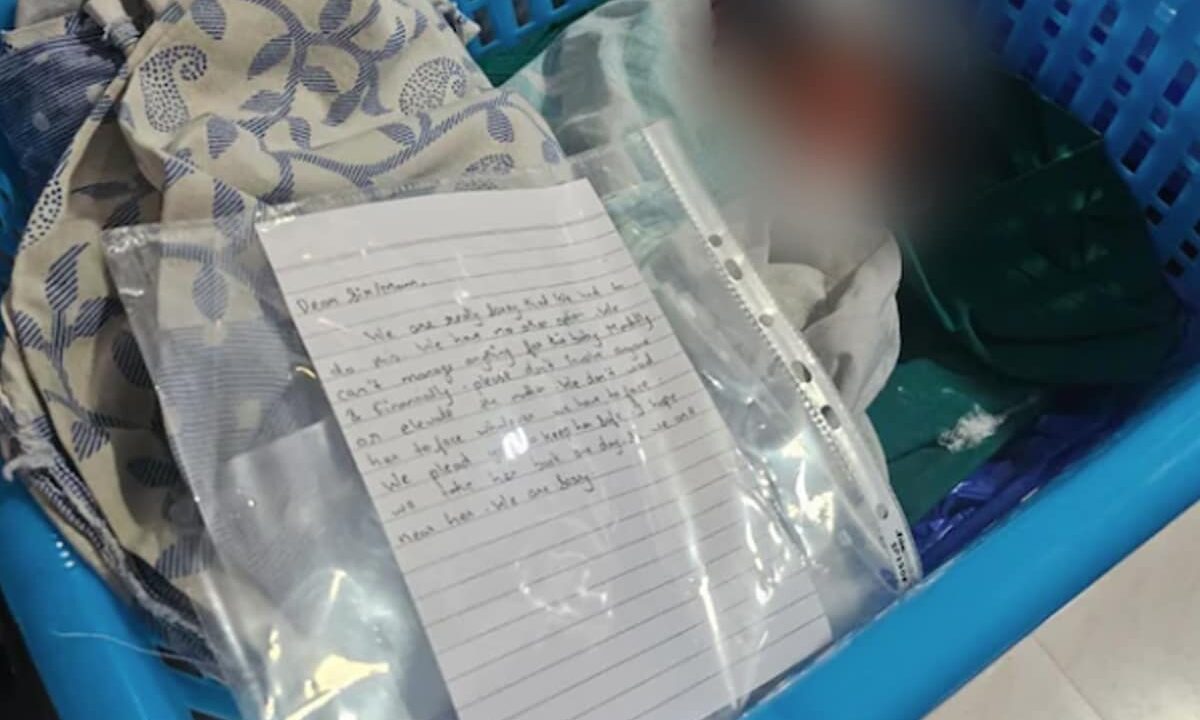 Dear Sir/Mam,
We are really sorry that we had to
do this. We had no other option. We
can't manage anything for the baby Mentally
& Financially. please don't involve anyone
or elevate the matter. We don't want
her to face whatever we have to face
We plead you to keep her safe. I hope
we take her back one day. if we are
near her. We are sorry